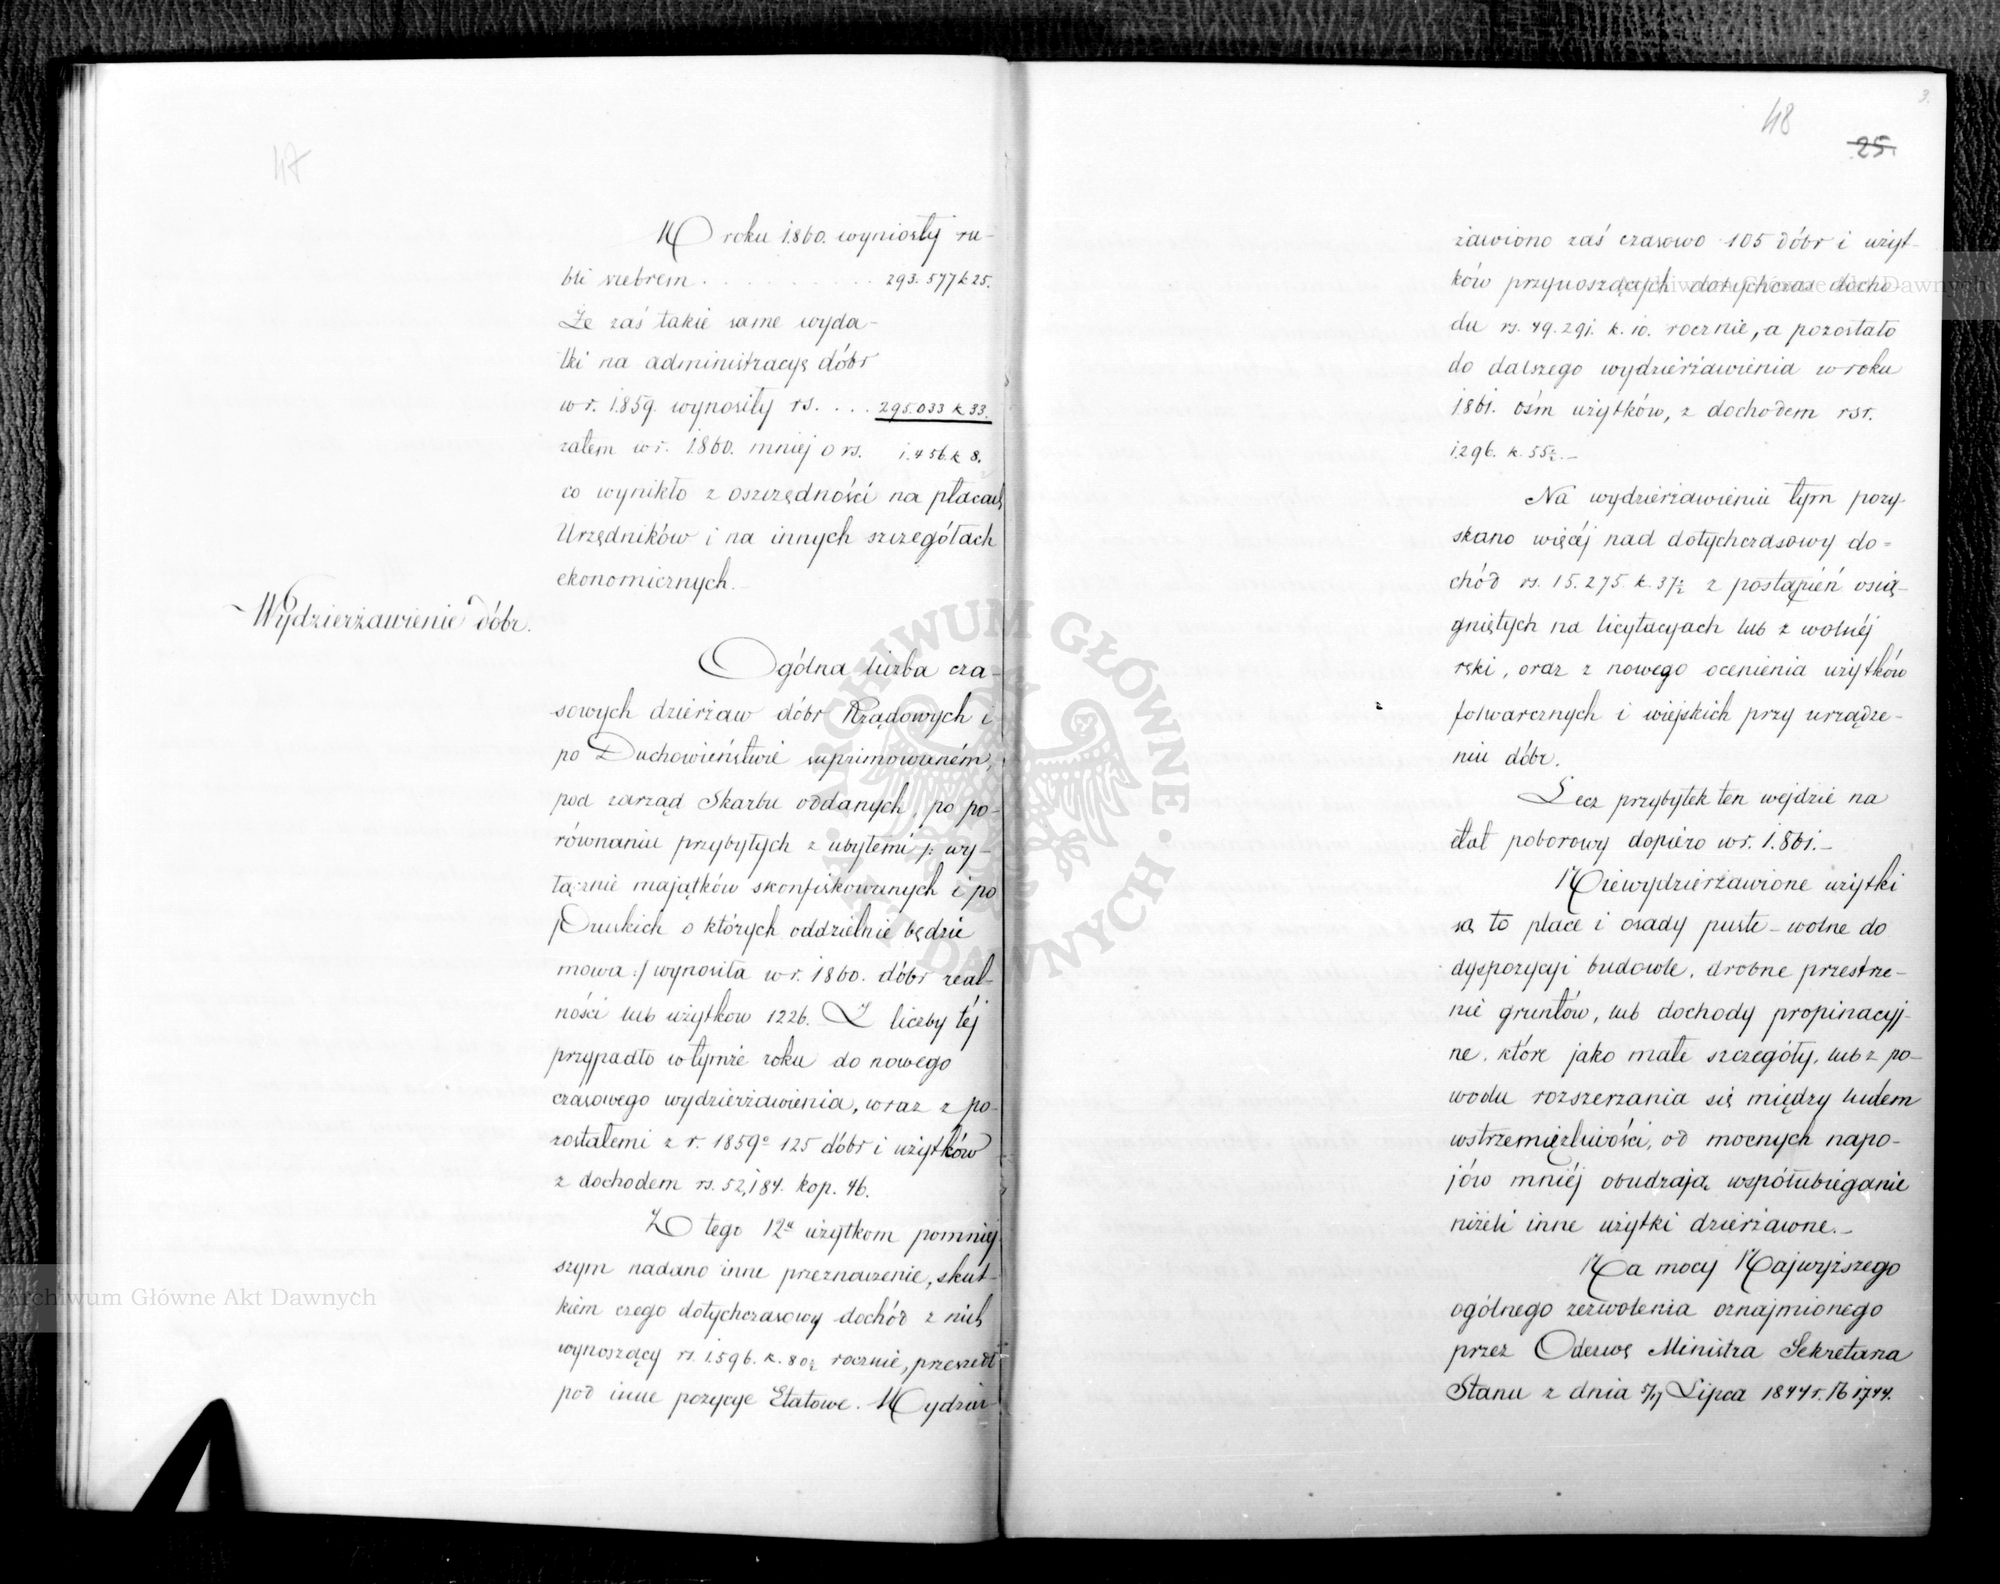 47
W roku 1860. wyniosły ru-
bli srebrem . . . . . . . . . . 293.577 k 25.
Że zaś takie same wyda-
tki na administracyę dóbr
w r. 1859. wynosiły rs. . . . 295.033 k 33.
zatem w r. 1860. mniej o rs. 1.456. k 8.
co wynikło z oszczędności na płacach
Urzędników i na innych szczegółach
ekonomicznych.
Wydzierżawienie dóbr.
Ogólna liczba cza-
sowych dzierżaw dóbr Rządowych i
po Duchowieństwie suprimowaném,
pod zarząd Skarbu oddanych, po po-
równaniu przybyłych z ubyłemi /: wy-
łącznie majątków skonfiskowanych i po
Pruskich o których oddzielnie będzie
mowa :/ wynosiła w r. 1860. dóbr real-
ności lub użytkow 1226. Z liczby téj
przypadło w tymże roku do nowego
czasowego wydzierżawienia, wraz z po-
zostałemi z r. 1859o 125 dóbr i użytków
z dochodem rs. 52,184. kop. 46.
Z tego 12u użytkom pomniej-
szym nadano inne przeznaczenie, skut-
kiem czego dotychczasowy dochód z nich
wynoszący rs. 1.596. k. 80½ rocznie, przeszedł
pod inne pozycye Etatowe. Wydzier-
3.
48
25.
żawiono zaś czasowo 105 dóbr i użyt-
ków przynoszących dotychczas docho-
du rs. 49.291. k. 10. rocznie, a pozostało
do dalszego wydzierżawienia w roku
1861. ośm użytków, z dochodem rsr.
1.296. k. 55½.-
Na wydzierżawieniu tym pozy-
skano więcéj nad dotychczasowy do-
chód rs. 15.275 k. 37½ z postąpień osią-
gniętych na licytacyach lub z wolnéj
ręki, oraz z nowego ocenienia użytków
folwarcznych i wiejskich przy urządze-
niu dóbr.
Lecz przybytek ten wejdzie na
etat poborowy dopiéro w r. 1861.-
Niewydzierżawione użytki
są to place i osady puste - wolne do
dyspozycyi budowle, drobne przestrze-
nie gruntów, lub dochody propinacyj-
ne, które jako małe szczegóły, lub z po-
wodu rozszerzania się między ludem
wstrzemięźliwości, od mocnych napo-
jów mniéj obudzają współubieganie
niżeli inne użytki dzierżawne.-
Na mocy Najwyższego
ogólnego zezwolenia oznajmionego
przez Odezwę Ministra Sekretarza
Stanu z dnia 5/17 Lipca 1844 r. N 1744.
Archiwum Główne Akt Dawnych
Archiwum Główne Akt Dawnych
ARCHIWUM GŁÓWNE AKT DAWNYCH